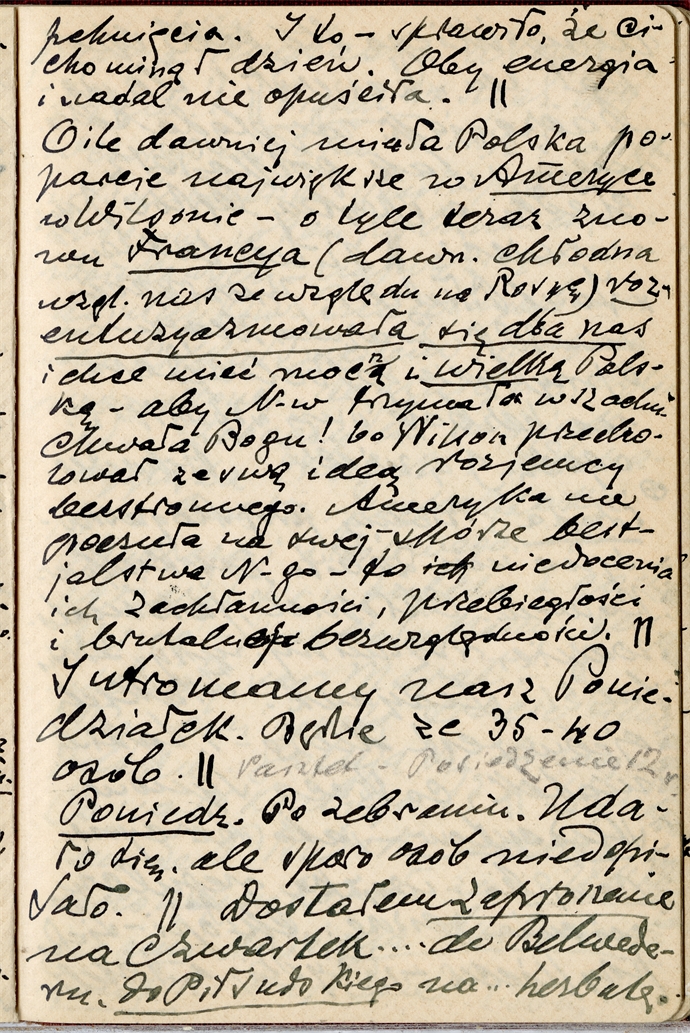 pchnięcia. I to – sprawiło, że ci-
cho minął dzień. Oby energia
i nadal nie opuściła. ||
O ile dawniej miała Polska po-
parcie największe w Ameryce
w Wilsonie – o tyle teraz zno-
wu Francya (dawn. chłodna
wzgl. nas ze względu na Rosyę) roz-
entuzyazmowała się dla nas
i chce mieć mocną i wielką Pols-
kę – aby N-w trzymała w szachu
Chwała Bogu! bo Wilson przecho-
rował ze swą ideą rozjemcy
bezstronnego. Ameryka nie
poczuła na swej skórze best-
jalstwa N-go – to ich niedocenia
ich zachłanności, przebiegłości
i brutalnej bezwzględności. ||
Jutro mamy nasz Ponie-
działek. Będzie ze 35-40
osób. || Posiedzenie 12
Poniedz. Po zebraniu. Uda-
ło się. ale sporo osób niedopi-
sało. || Dostałem zaproszenie
na Czwartek.... do Belwede-
ru. do Piłsudskiego na... herbatę.